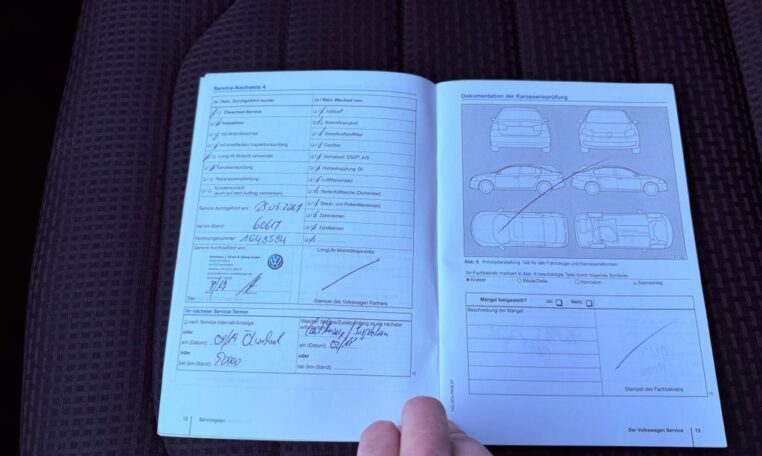 Service-Nachweis 4
Ja / Nein Durchgeführt wurde:
Ja / Nein Wechsel von:
Ölwechsel-Service
Inspektion
mit Motorölwechsel
mit erweitertem Inspektionsumfang
LongLife Motoröl verwendet
Karosserieprüfung
Reparaturempfehlung
Kundenwunsch
(auch auf dem Auftrag vermerken)
AdBlue®
Bremsflüssigkeit
Dieselkraftstofffilter
Gasfilter
Getriebeöl: DSG®, ATF
Haldexkupplung: Öl
Luftfiltereinsatz
Reifenfüllflasche (Dichtmittel)
Staub- und Pollenfiltereinsatz
Zahnriemen
Zündkerzen
Service durchgeführt am:
bei km-Stand: 60617
Rechnungsnummer: 1648584
Service durchgeführt von:
LongLife Mobilitätsgarantie:
Stempel des Volkswagen Partners
Ihr nächster Service-Termin
nach Service-Intervall-Anzeige
oder
am (Datum):
oder
bei (km-Stand): 90000
am (Datum):
oder
bei (km-Stand):
12 Serviceplan
Dokumentation der Karosserieprüfung
Abb. 6 Prinzipdarstellung. Gilt für alle Fahrzeuge und Karosserieformen.
Ihr Fachbetrieb markiert in Abb. 6 beschädigte Teile durch folgende Symbole:
Kratzer Beule/Delle Korrosion Steinschlag
Mängel festgestellt? Ja: Nein:
Beschreibung der Mängel:
Stempel des Fachbetriebs
Der Volkswagen Service 13